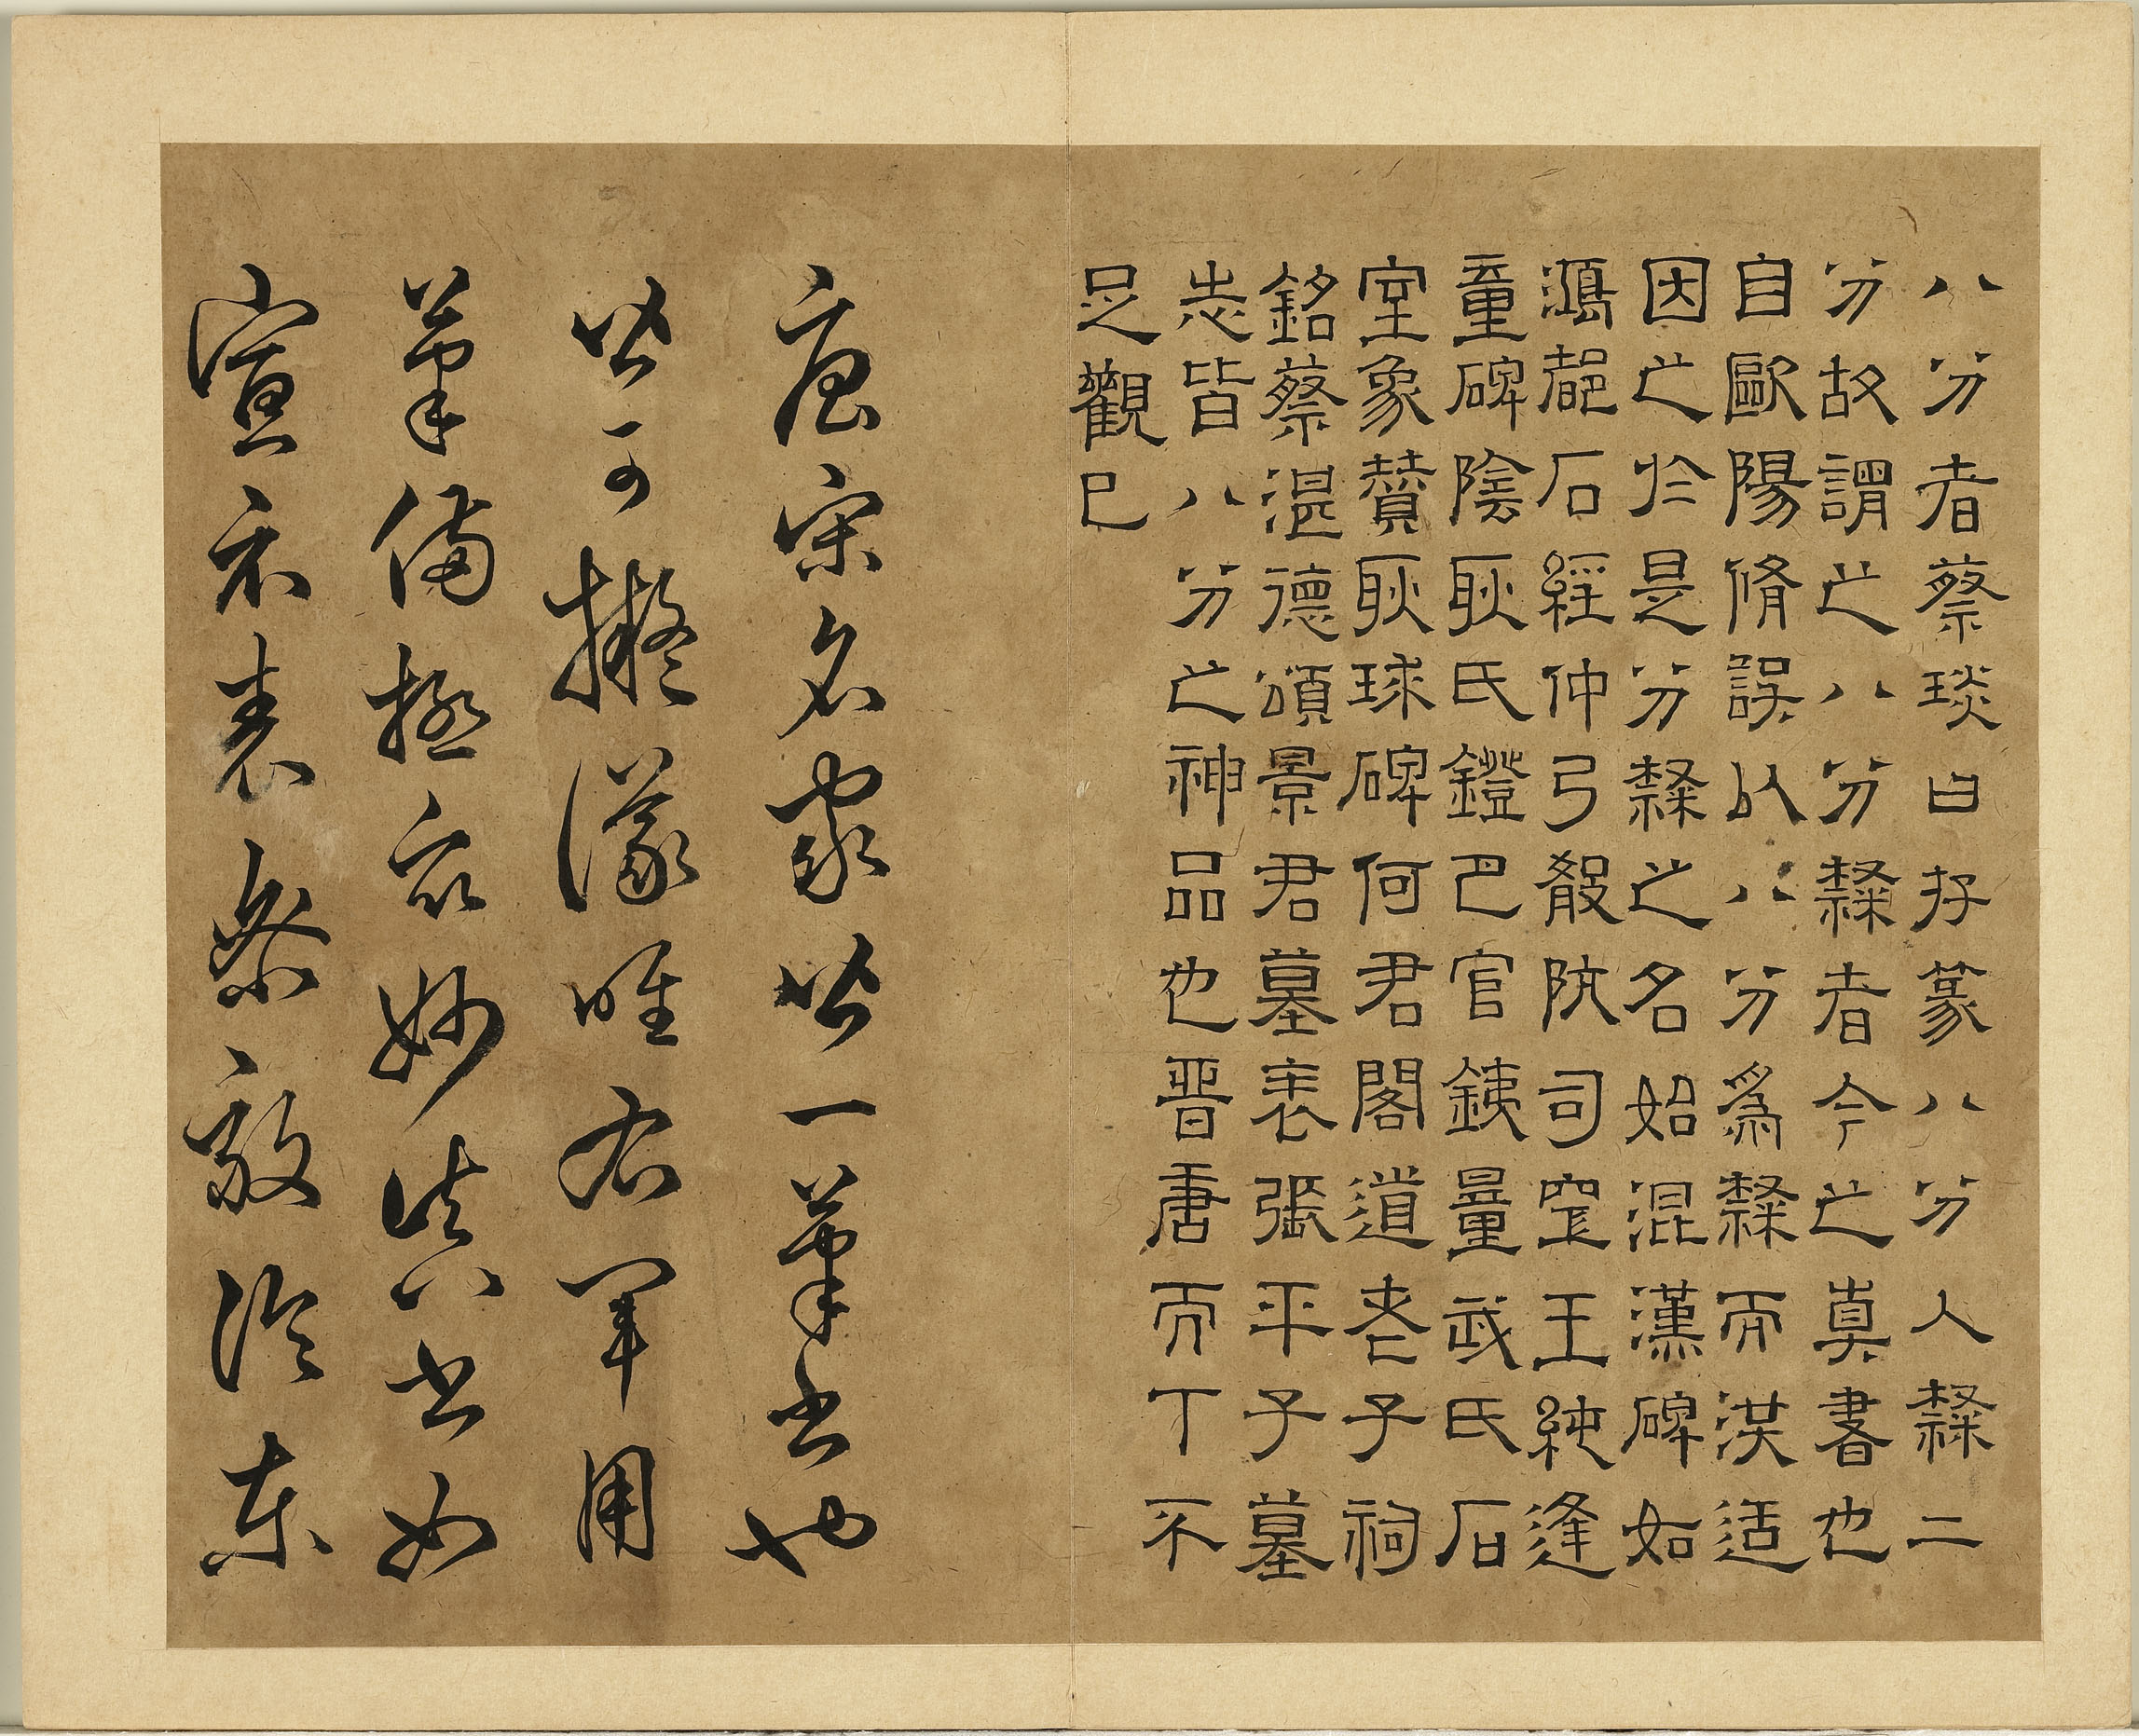 八分者蔡琰曰存篆八分入隸二
分故謂之八分隸者今之真書也
自歐陽脩誤以八分為隸而漢适
因之於是分隸之名始混漢碑如
鴻都石經仲弓殽阬司空王純逢
童碑陰耿氏鐙巴官鐵量武氏石
室象贊耿球碑何君閣道老子祠
銘蔡湛德頌景君墓表張平子墓
志皆八分之神品也晉唐而下不
足觀已
唐宋名家皆一筆書也
皆可擬議唯右軍用
筆備極眾妙真書如
宣示表樂毅論東